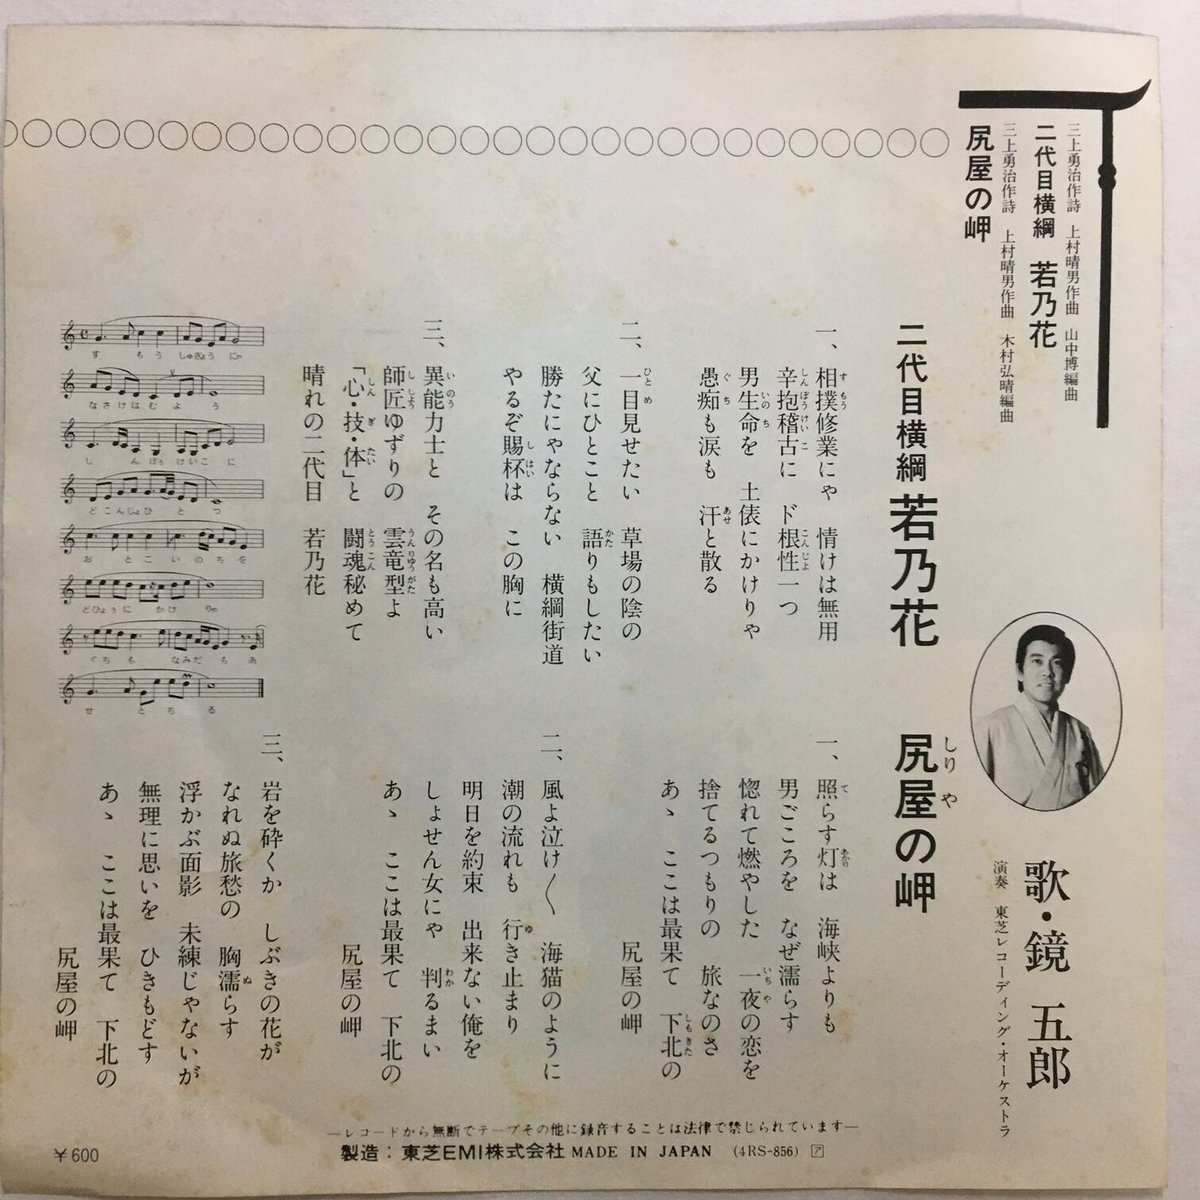 三上勇治作詩　上村晴男作曲　山中博編曲
二代目横綱　若乃花
三上勇治作詩　上村晴男作曲　木村弘晴編曲
尻屋の岬
歌・鏡　五郎
演奏　東芝レコーディング・オーケストラ
二代目横綱　若乃花
一、相撲修業にゃ　情けは無用
辛抱稽古に　ド根性一つ
男生命を　土俵にかけりゃ
愚痴も涙も　汗と散る
二、一目見せたい　草場の陰の
父にひとこと　語りもしたい
勝たにゃならない　横綱街道
やるぞ賜杯は　この胸に
三、異能力士と　その名も高い
師匠ゆずりの　雲竜型よ
「心・技・体」と　闘魂秘めて
晴れの二代目　若乃花
すもうしゅぎょうにゃ
なさけはむよう
しんぼうけいこに
どこんじょひとつ
おとこいのちを
どひょうにかけりゃ
ぐちもなみだもあ
せとちる
尻屋の岬
一、照らす灯は　海峡よりも
男ごころを　なぜ濡らす
惚れて燃やした　一夜の恋を
捨てるつもりの　旅なのさ
あゝ　ここは最果て　下北の
尻屋の岬
二、風よ泣け〱　海猫のように
潮の流れも　行き止まり
明日を約束　出来ない俺を
しょせん女にゃ　判るまい
あゝ　ここは最果て　下北の
尻屋の岬
三、岩を砕くか　しぶきの花が
なれぬ旅愁の　胸濡らす
浮かぶ面影　未練じゃないが
無理に思いを　ひきもどす
あゝ　ここは最果て　下北の
尻屋の岬
―レコードから無断でテープその他に録音することは法律で禁じられています―
製造：東芝EMI株式会社 MADE IN JAPAN (4RS-856) ア
￥600